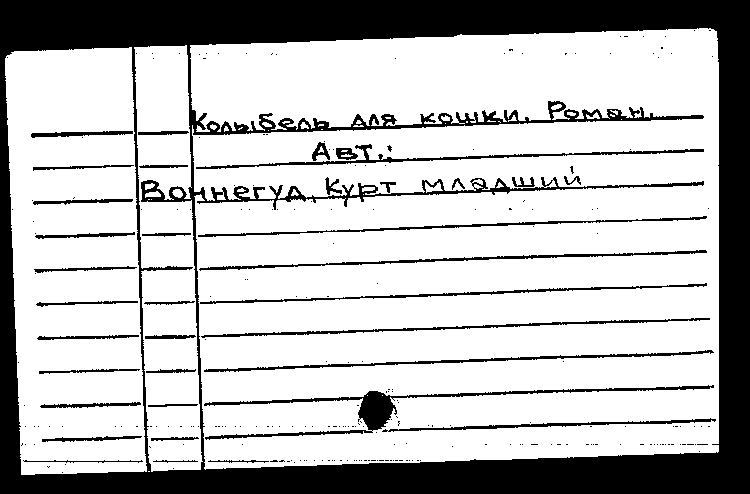 Колыбель для кошки. Роман.
Авт.:
Воннегуд, Курт младший